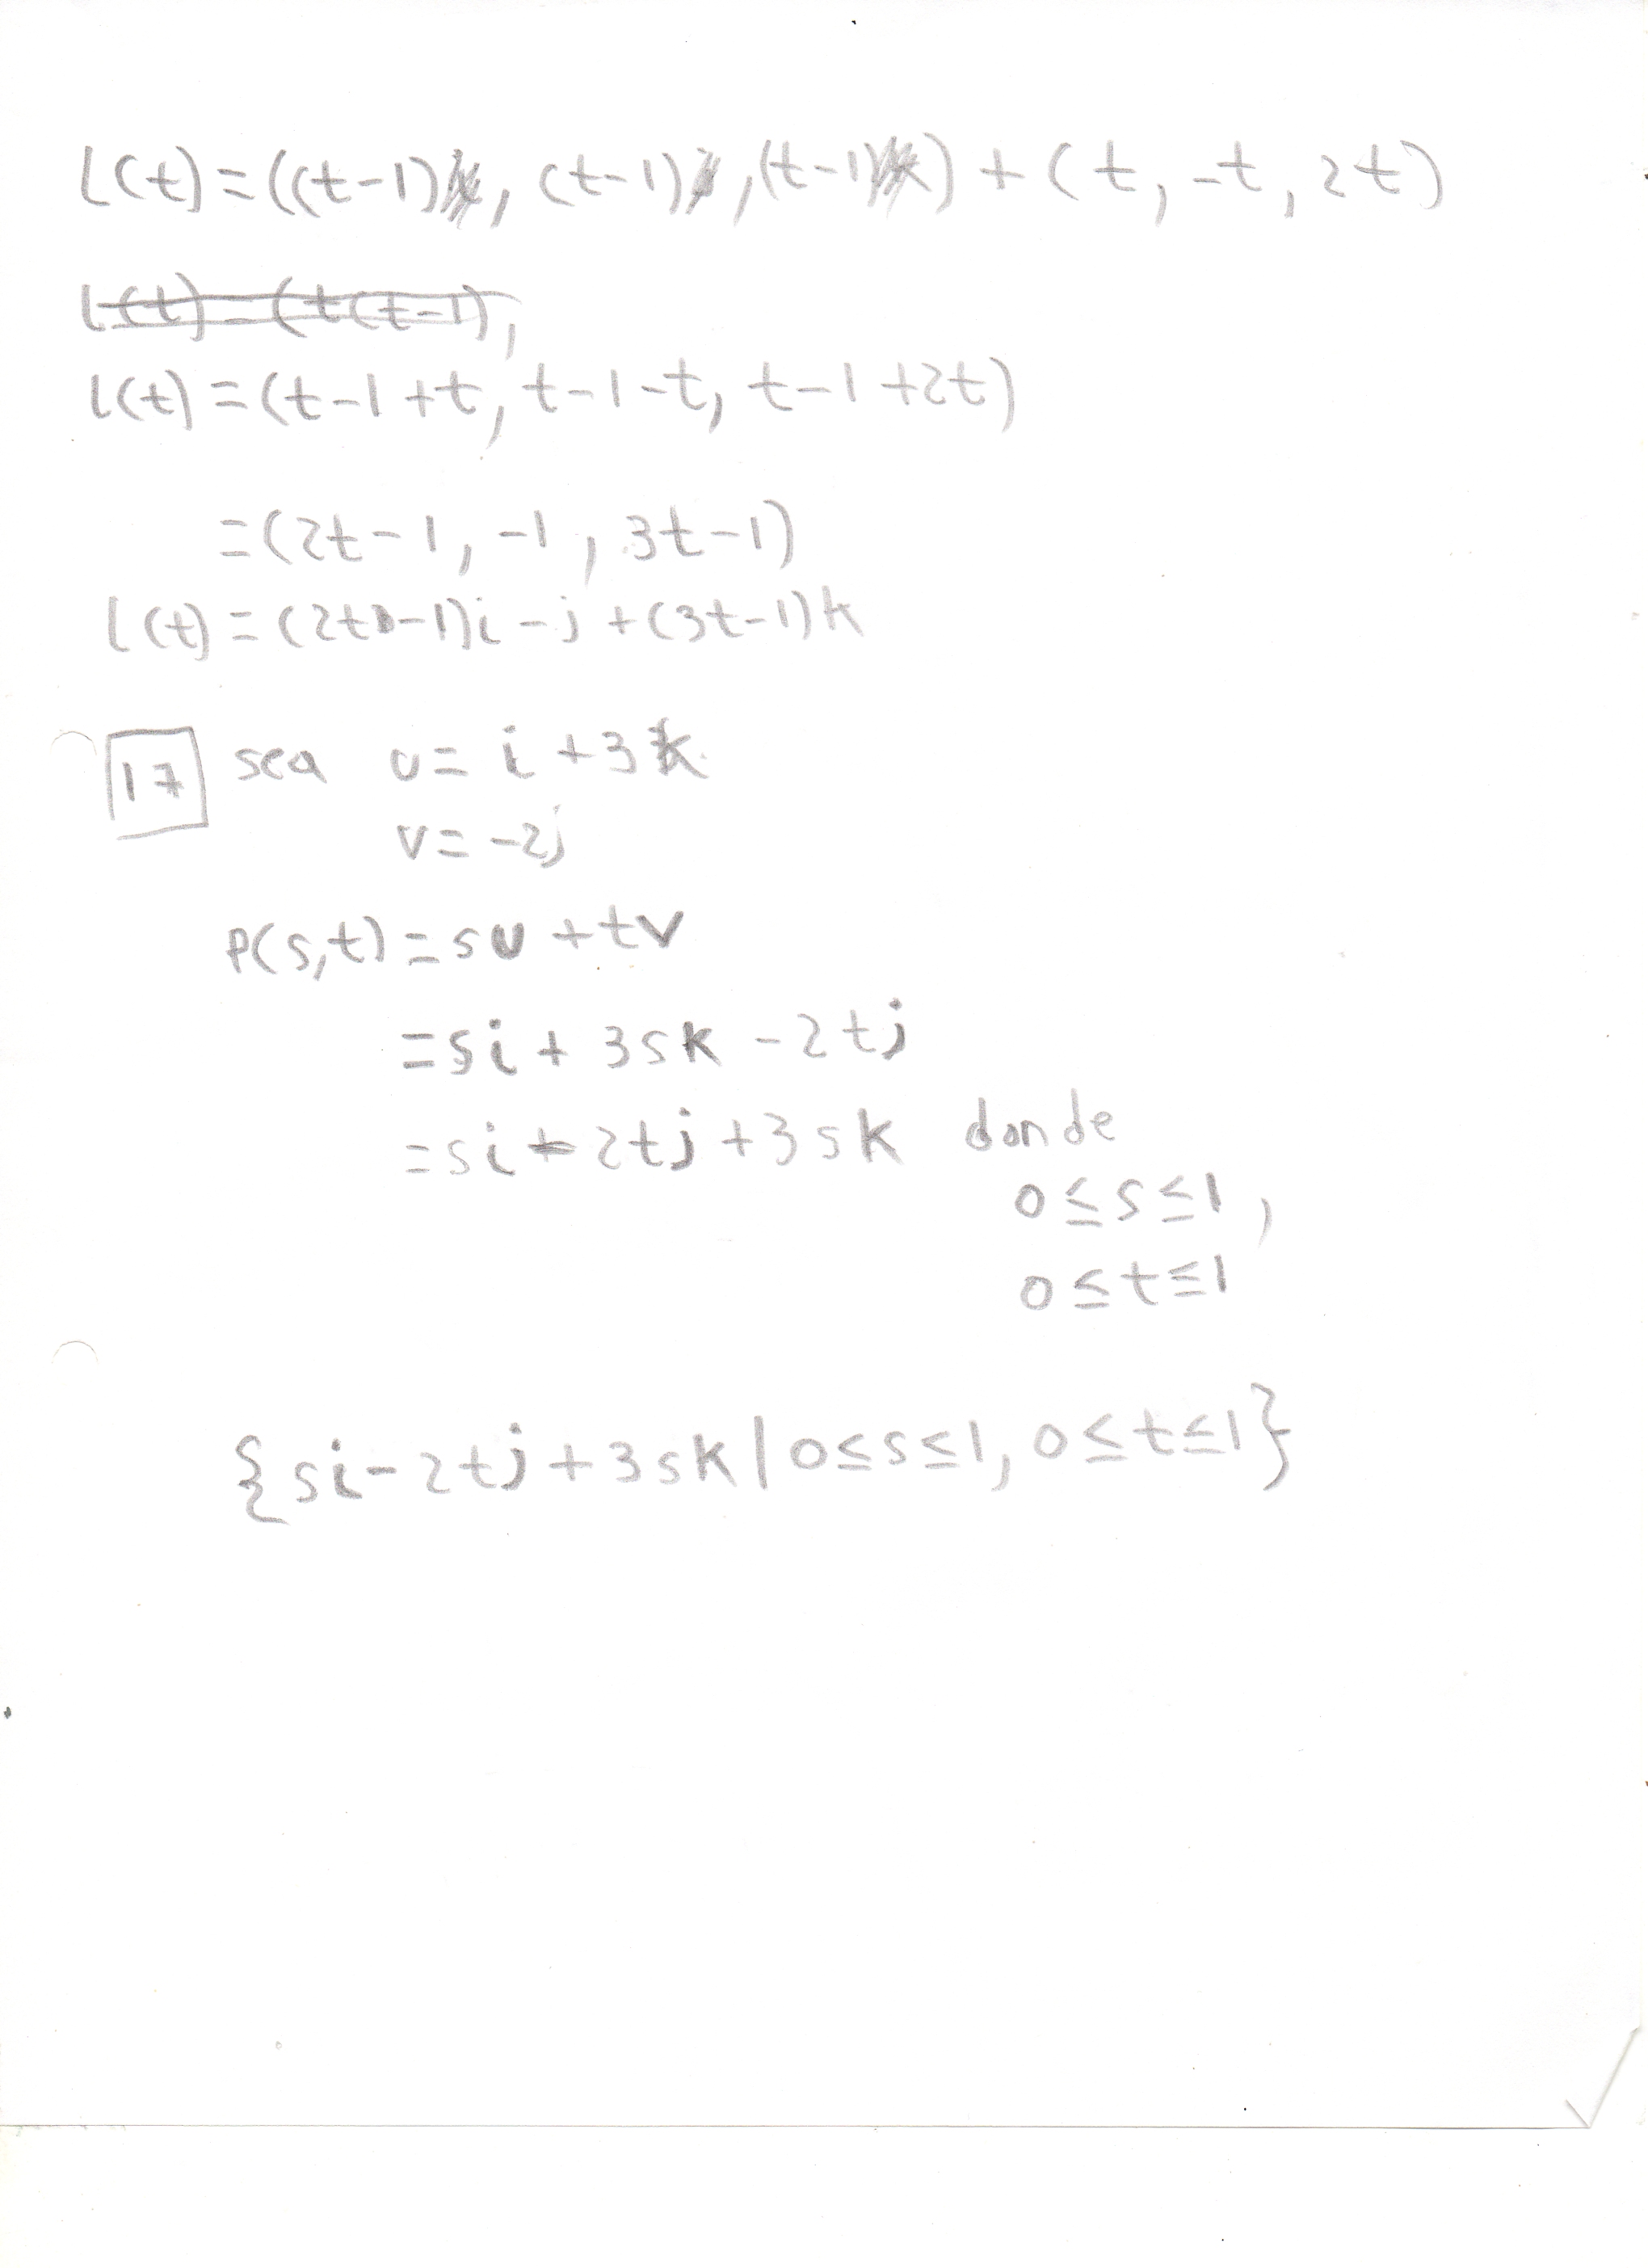 l(t) = ((t-1), (t-1), (t-1)) + (t, -t, 2t)
l(t) = (t(t-1),
l(t) = (t-1+t, t-1-t, t-1+2t)
= (2t-1, -1, 3t-1)
l(t) = (2t-1)i - j + (3t-1)k
17 sea u = i + 3k
v = -2j
P(s,t) = su + tv
= si + 3sk - 2tj
= si - 2tj + 3sk donde
0 ≤ s ≤ 1,
0 ≤ t ≤ 1
{si - 2tj + 3sk | 0 ≤ s ≤ 1, 0 ≤ t ≤ 1}